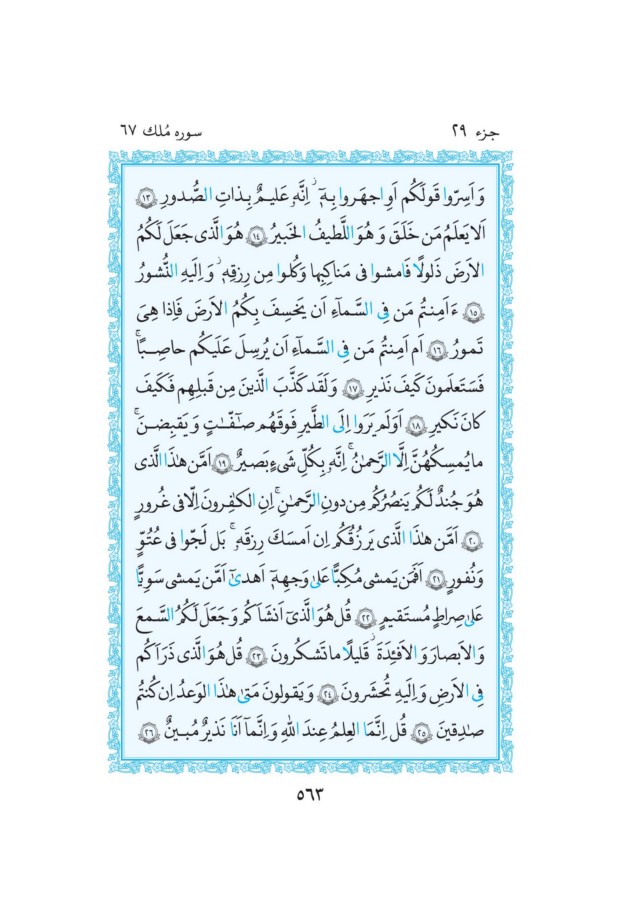 جزء ۲۹
سوره مُلك ۶۷
وَ اَسِرّوا قَولَكُم اَوِ اجهَروا بِهِۦٓ ۖ اِنَّهُۥ عَليمٌ بِذاتِ الصُّدورِ ﴿۱۳﴾
اَلا يَعلَمُ مَن خَلَقَ وَ هُوَ اللَّطيفُ الخَبيرُ ﴿۱۴﴾ هُوَ الَّذى جَعَلَ لَكُمُ
الاَرضَ ذَلولًا فَامشوا فى مَناكِبِها وَ كُلوا مِن رِزقِهِۦ ۖ وَ اِلَيهِ النُّشورُ
﴿۱۵﴾ ءَاَمِنتُم مَن فِى السَّماۤءِ اَن يَخسِفَ بِكُمُ الاَرضَ فَاِذا هِىَ
تَمورُ ﴿۱۶﴾ اَم اَمِنتُم مَن فِى السَّماۤءِ اَن يُرسِلَ عَلَيكُم حاصِبًا ۖ
فَسَتَعلَمونَ كَيفَ نَذيرِ ﴿۱۷﴾ وَ لَقَد كَذَّبَ الَّذينَ مِن قَبلِهِم فَكَيفَ
كانَ نَكيرِ ﴿۱۸﴾ اَوَلَم يَرَوا اِلَى الطَّيرِ فَوقَهُم صٰۤفّٰتٍ وَ يَقبِضنَ ۚ
ما يُمسِكُهُنَّ اِلَّا الرَّحمٰنُ ۚ اِنَّهُۥ بِكُلِّ شَىءٍ بَصيرٌ ﴿۱۹﴾ اَمَّن هٰذَا الَّذى
هُوَ جُندٌ لَكُم يَنصُرُكُم مِن دونِ الرَّحمٰنِ ۚ اِنِ الكٰفِرونَ اِلّا فى غُرورٍ
﴿۲۰﴾ اَمَّن هٰذَا الَّذى يَرزُقُكُم اِن اَمسَكَ رِزقَهُۥ ۚ بَل لَجّوا فى عُتُوٍّ
وَ نُفورٍ ﴿۲۱﴾ اَفَمَن يَمشى مُكِبًّا عَلىٰ وَجهِهِۦٓ اَهدىٰۤ اَمَّن يَمشى سَوِيًّا
عَلىٰ صِراطٍ مُستَقيمٍ ﴿۲۲﴾ قُل هُوَ الَّذىۤ اَنشَاَكُم وَ جَعَلَ لَكُمُ السَّمعَ
وَ الاَبصارَ وَ الاَفـِٔدَةَ ۖ قَليلًا ما تَشكُرونَ ﴿۲۳﴾ قُل هُوَ الَّذى ذَرَاَكُم
فِى الاَرضِ وَ اِلَيهِ تُحشَرونَ ﴿۲۴﴾ وَ يَقولونَ مَتىٰ هٰذَا الوَعدُ اِن كُنتُم
صٰدِقينَ ﴿۲۵﴾ قُل اِنَّمَا العِلمُ عِندَ اللّٰهِ وَ اِنَّماۤ اَنَا نَذيرٌ مُبينٌ ﴿۲۶﴾
۵۶۳